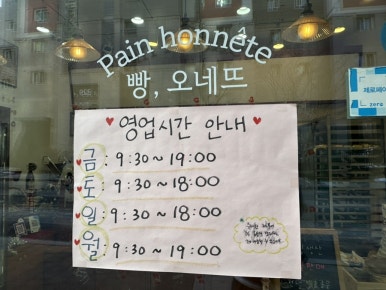 Pain honnête
빵, 오네뜨
영업시간 안내
금 : 9:30 ~ 19:00
토 : 9:30 ~ 18:00
일 : 9:30 ~ 18:00
월 : 9:30 ~ 19:00
제로페이
zero